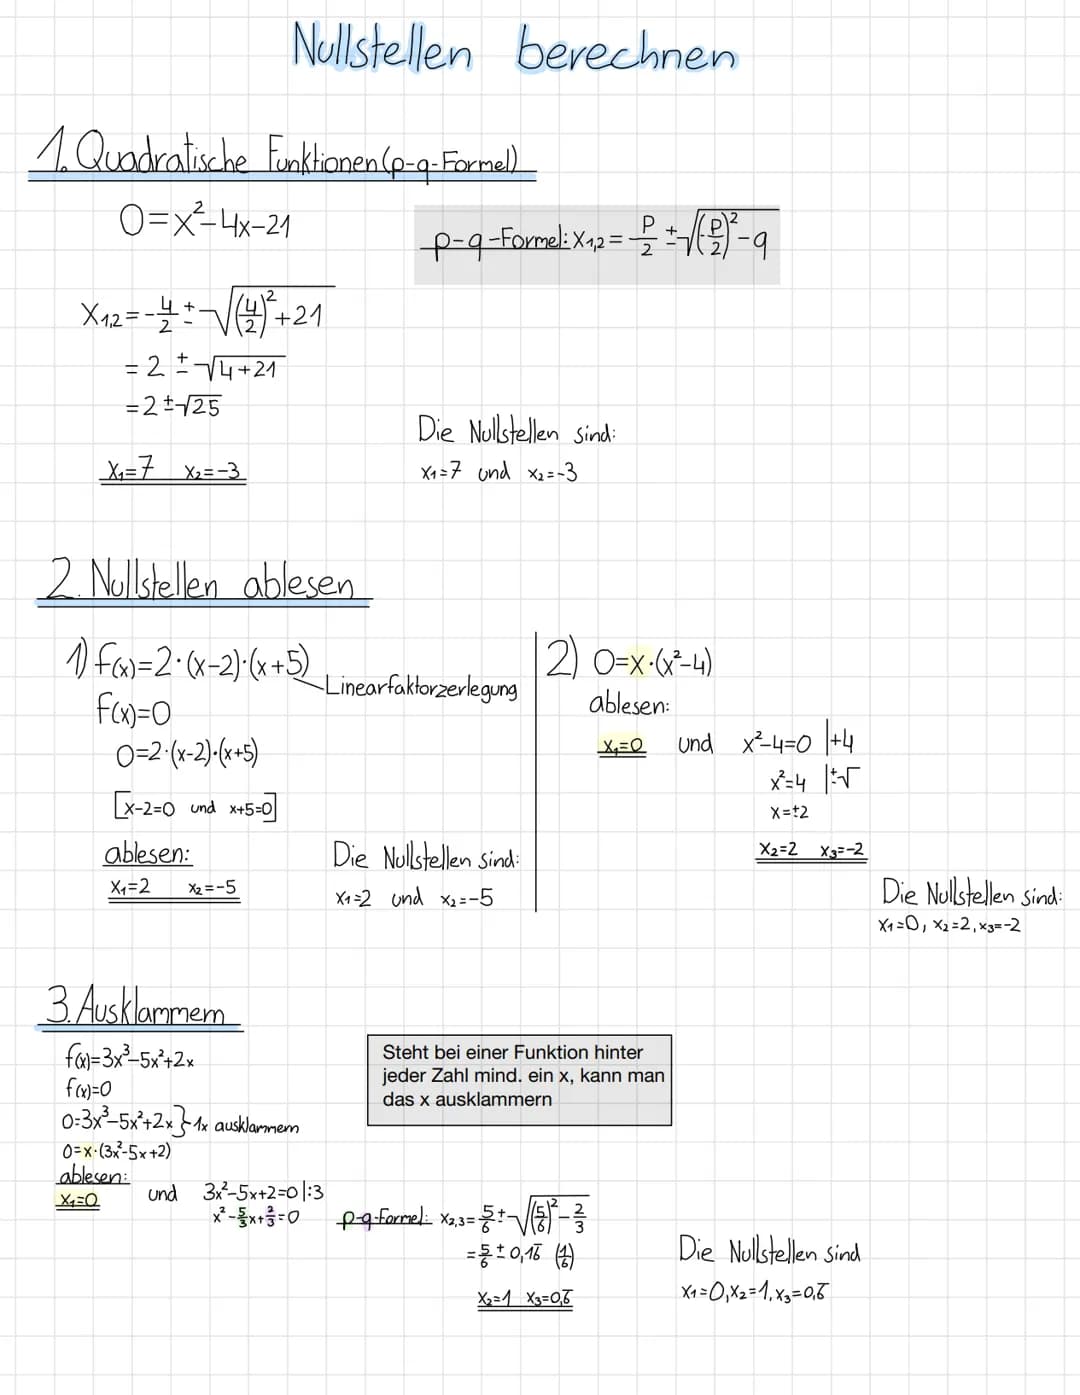 Nullstellen berechnen
1. Quadratische Funktionen (p-q-Formel)
0=x²-4x-21
p-q-Formel: x₁,₂ = -p/2 ± √((p/2)²-q)
x₁,₂ = -4/2 ± √((4/2)²+21)
= 2 ± √4+21
= 2 ± √25
x₁=7 x₂=-3
Die Nullstellen sind:
x₁=7 und x₂=-3
2. Nullstellen ablesen
1) f(x)=2·(x-2)·(x+5)
Linearfaktorzerlegung
f(x)=0
0=2·(x-2)·(x+5)
[x-2=0 und x+5=0]
ablesen:
x₁=2 x₂=-5
Die Nullstellen sind:
x₁=2 und x₂=-5
2) 0=x·(x²-4)
ablesen:
x₁=0 und x²-4=0 |+4
x²=4 |±√
x=±2
x₂=2 x₃=-2
Die Nullstellen sind:
x₁=0, x₂=2, x₃=-2
3. Ausklammern
f(x)=3x³-5x²+2x
f(x)=0
0=3x³-5x²+2x } 1x ausklammern
0=x·(3x²-5x+2)
ablesen:
x₁=0 und 3x²-5x+2=0 |:3
x²-5/3x+2/3=0
Steht bei einer Funktion hinter
jeder Zahl mind. ein x, kann man
das x ausklammern
p-q-Formel: x₂,₃ = 5/6 ± √((5/6)²-2/3)
= 5/6 ± 0,16̅ (1/6)
x₂=1 x₃=0,6̅
Die Nullstellen sind
x₁=0, x₂=1, x₃=0,6̅